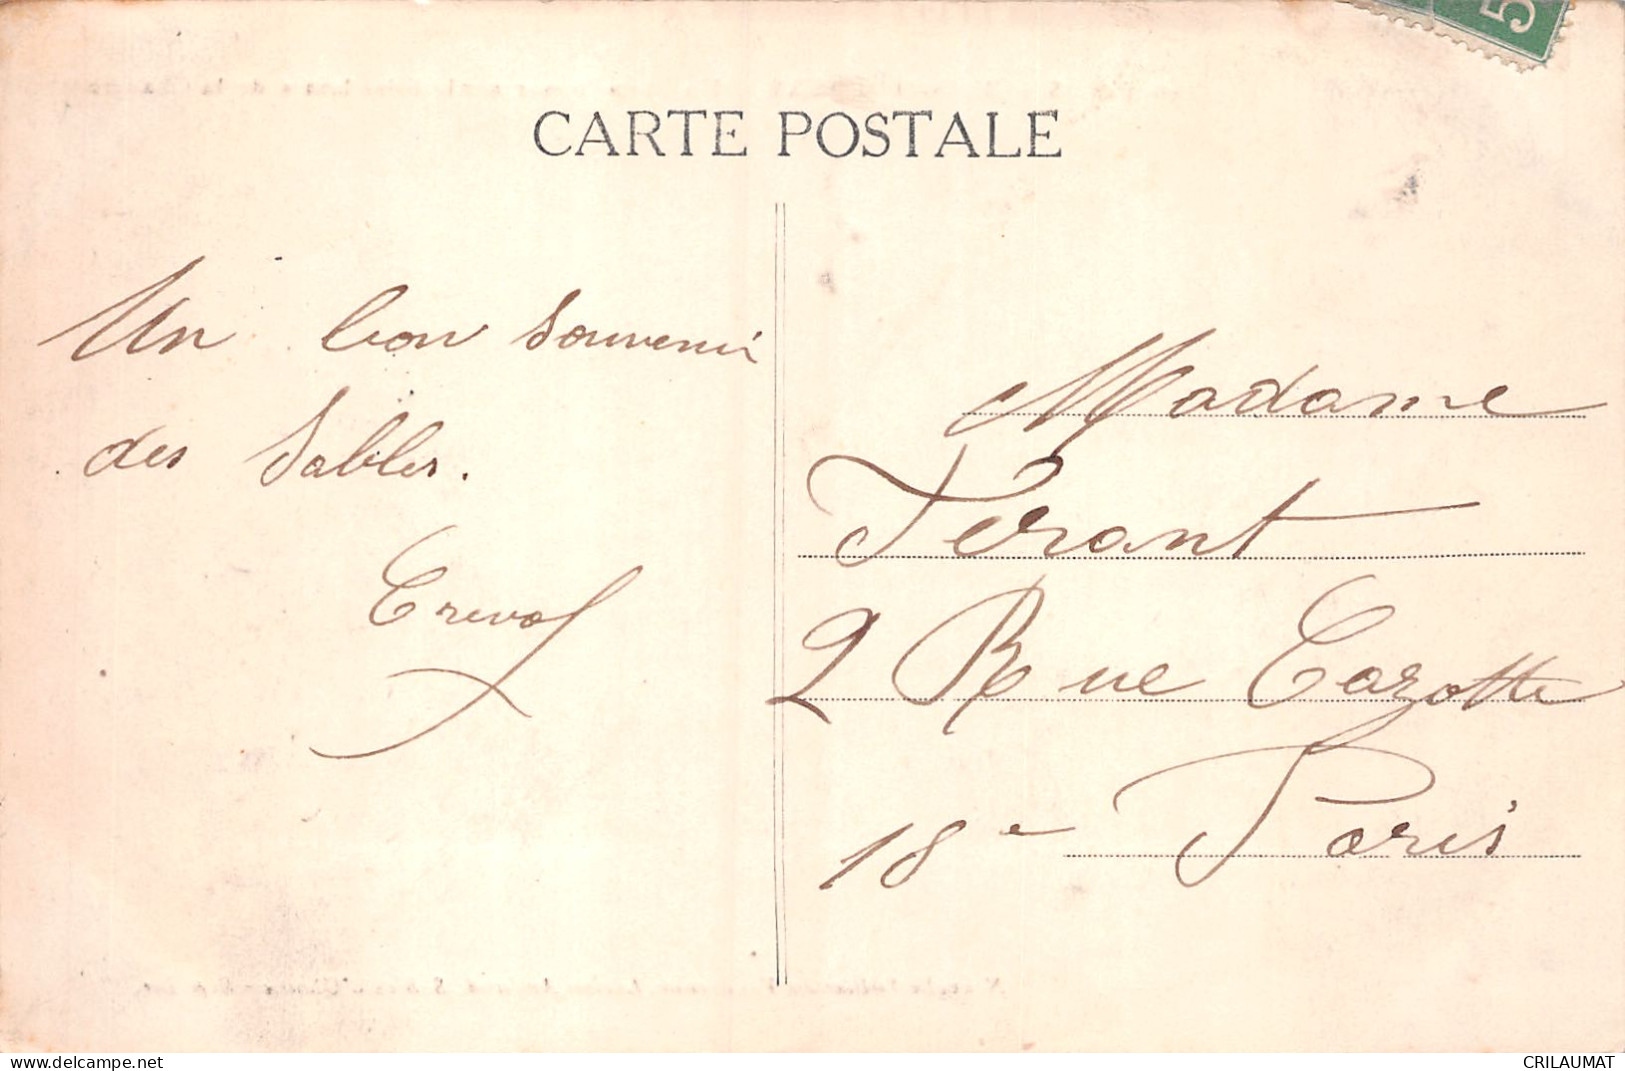 5
CARTE POSTALE
Un bon souvenir
des Sables.
Madame
Ferant
2 Rue Cazotte
18e Paris
delcampe.net
CRILAUMAT